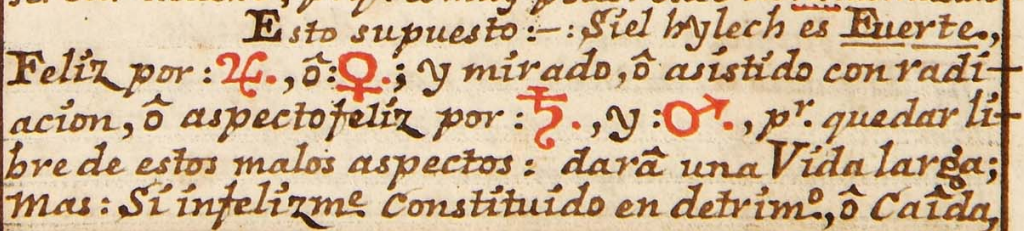 Esto supuesto:–: Si el hylech es Fuerte.,
Feliz por: ♃., ô: ♀.; y mirado, ô asistido con radi–
acion, ô aspecto feliz por: ♄., y: ♂., pʳ. quedar li–
bre de estos malos aspectos: darâ una Vida larga;
Mas: Si infelizmᵉ. Constituido en detrimᵒ., ô Caîda,